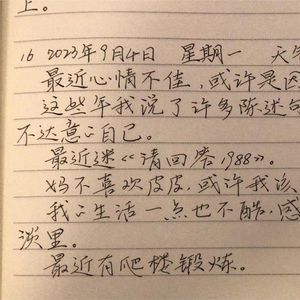 上。
16 2023年9月4日 星期一 天气
最近心情不佳，或许是因
这些年我说了许多陈述句
不达意的自己。
最近迷《请回答1988》。
妈不喜欢皮皮，或许我该
我的生活一点也不酷，感
淡里。
最近有爬楼锻炼。